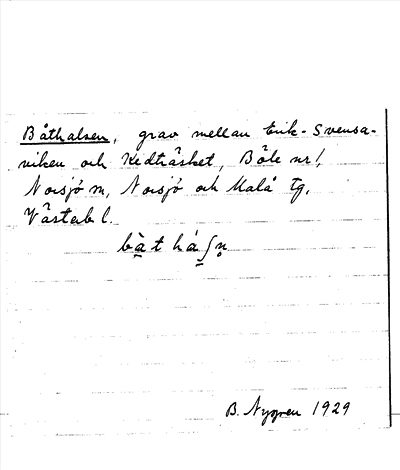 Båthalsen, grav mellan Erik-Svensa-
viken och Kedträsket, Böle nr 1,
Norsjö sn, Norsjö och Malå tg,
Västerb l.
bàt há∫n̥
B. Nygren 1929